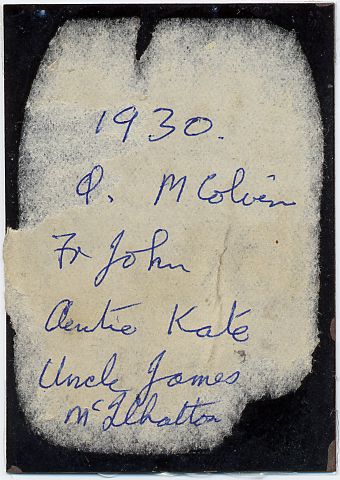 1930.
P. McColvin
Fr John
Auntie Kate
Uncle James
McIlhatton